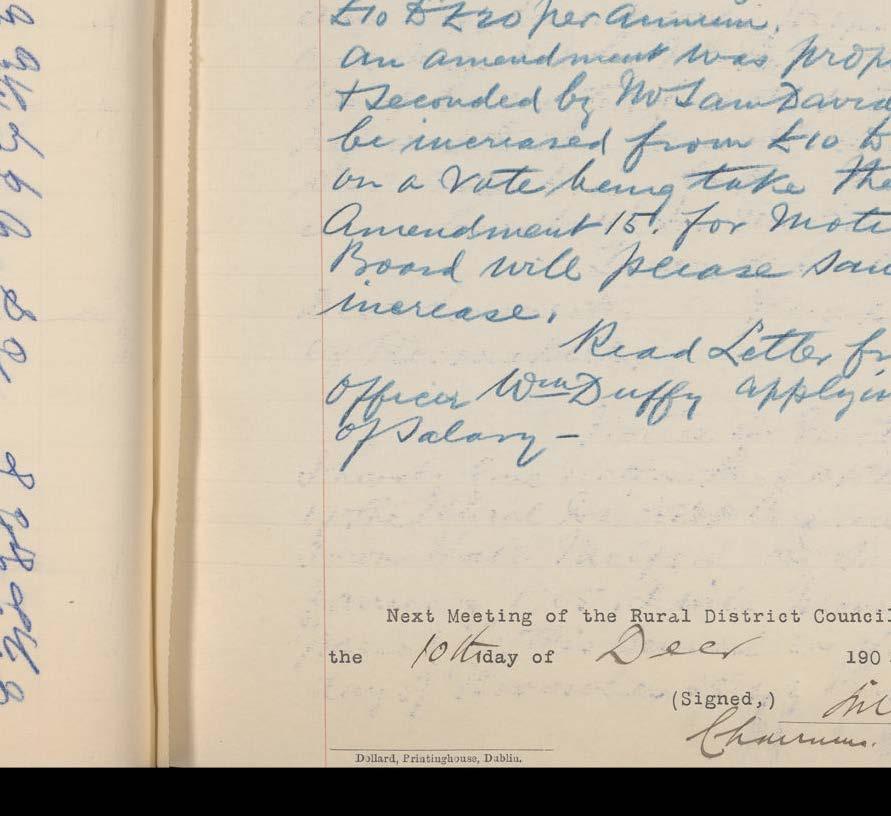 £10 to £20 per annum.
an amendment was prop
+ seconded by Mr Sam David
be increased from £10 to
on a Vote being take the
Amendment 15. for Moti
Board will please san
increase.
Read Letter fr
Officer Wm Duffy applyin
of Salary –
Next Meeting of the Rural District Council
the 10th day of Decr 190
(Signed,)
Chairman.
Dollard, Printinghouse, Dublin.